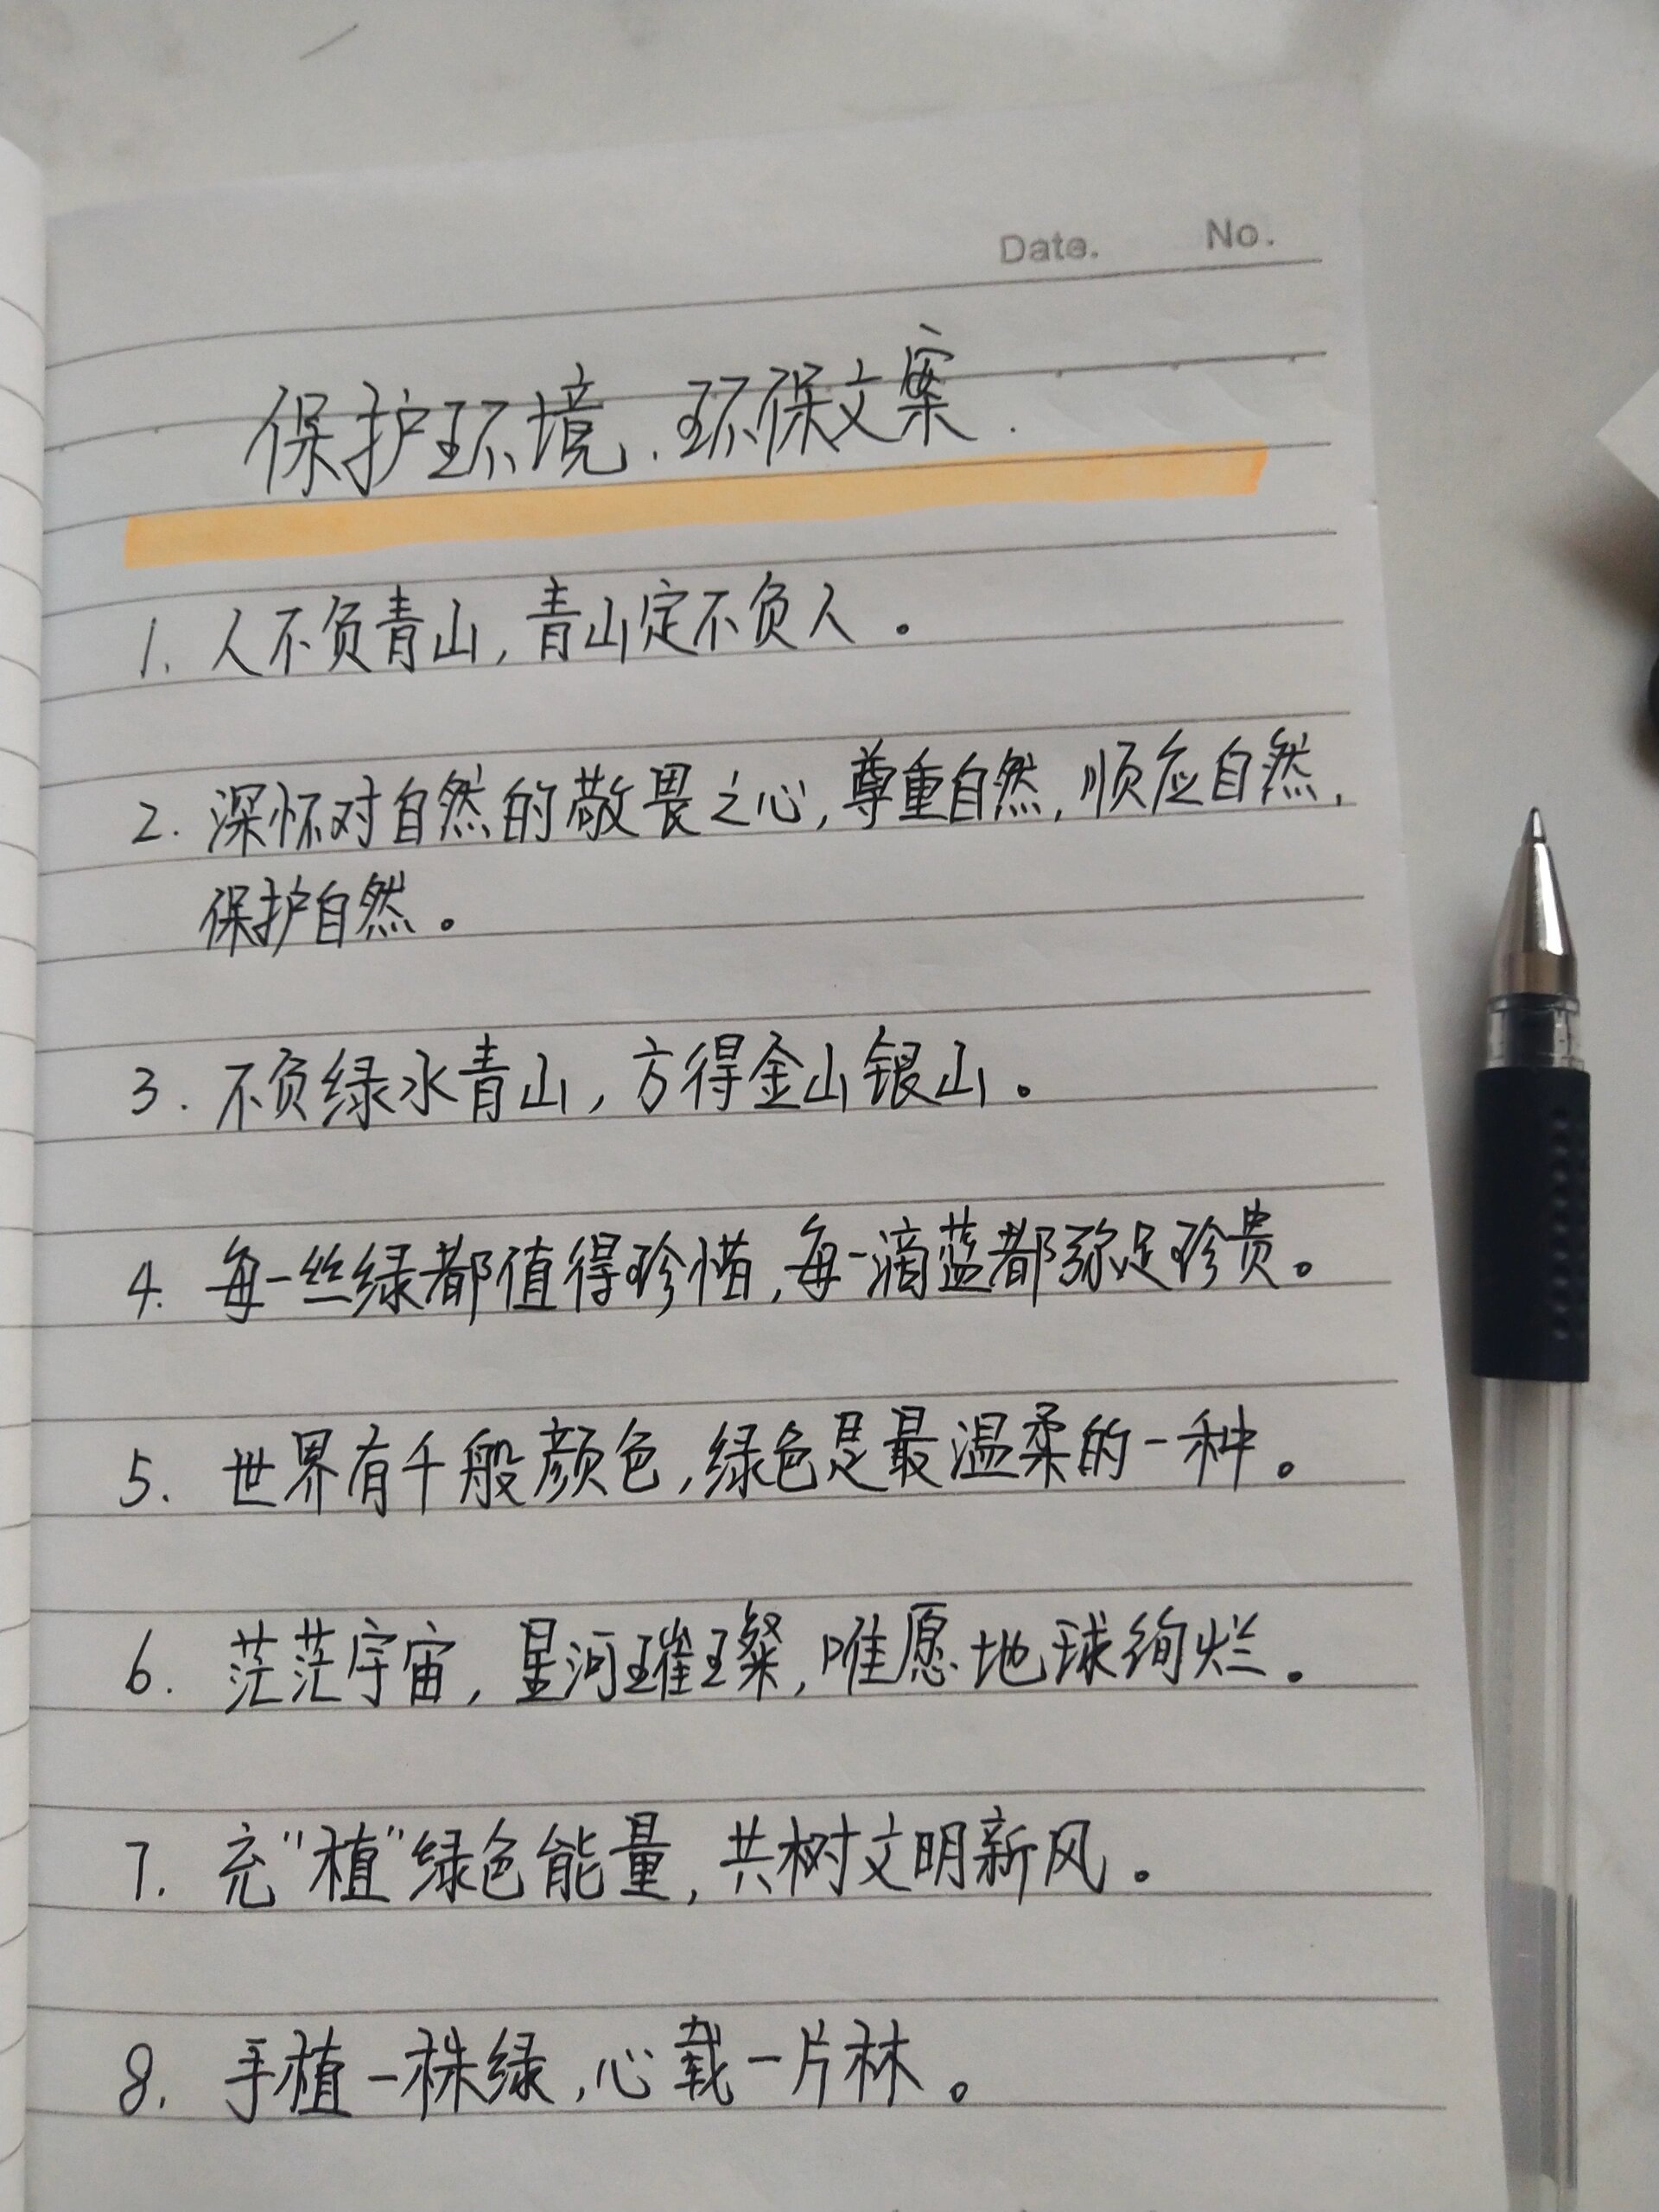 Date. No.
保护环境.环保文案.
1. 人不负青山,青山定不负人。
2. 深怀对自然的敬畏之心,尊重自然,顺应自然,
保护自然。
3. 不负绿水青山,方得金山银山。
4. 每一丝绿都值得珍惜,每一滴蓝都弥足珍贵。
5. 世界有千般颜色,绿色是最温柔的一种。
6. 茫茫宇宙,星河璀璨,唯愿地球绚烂。
7. 充"植"绿色能量,共树文明新风。
8. 手植一株绿,心载一片林。